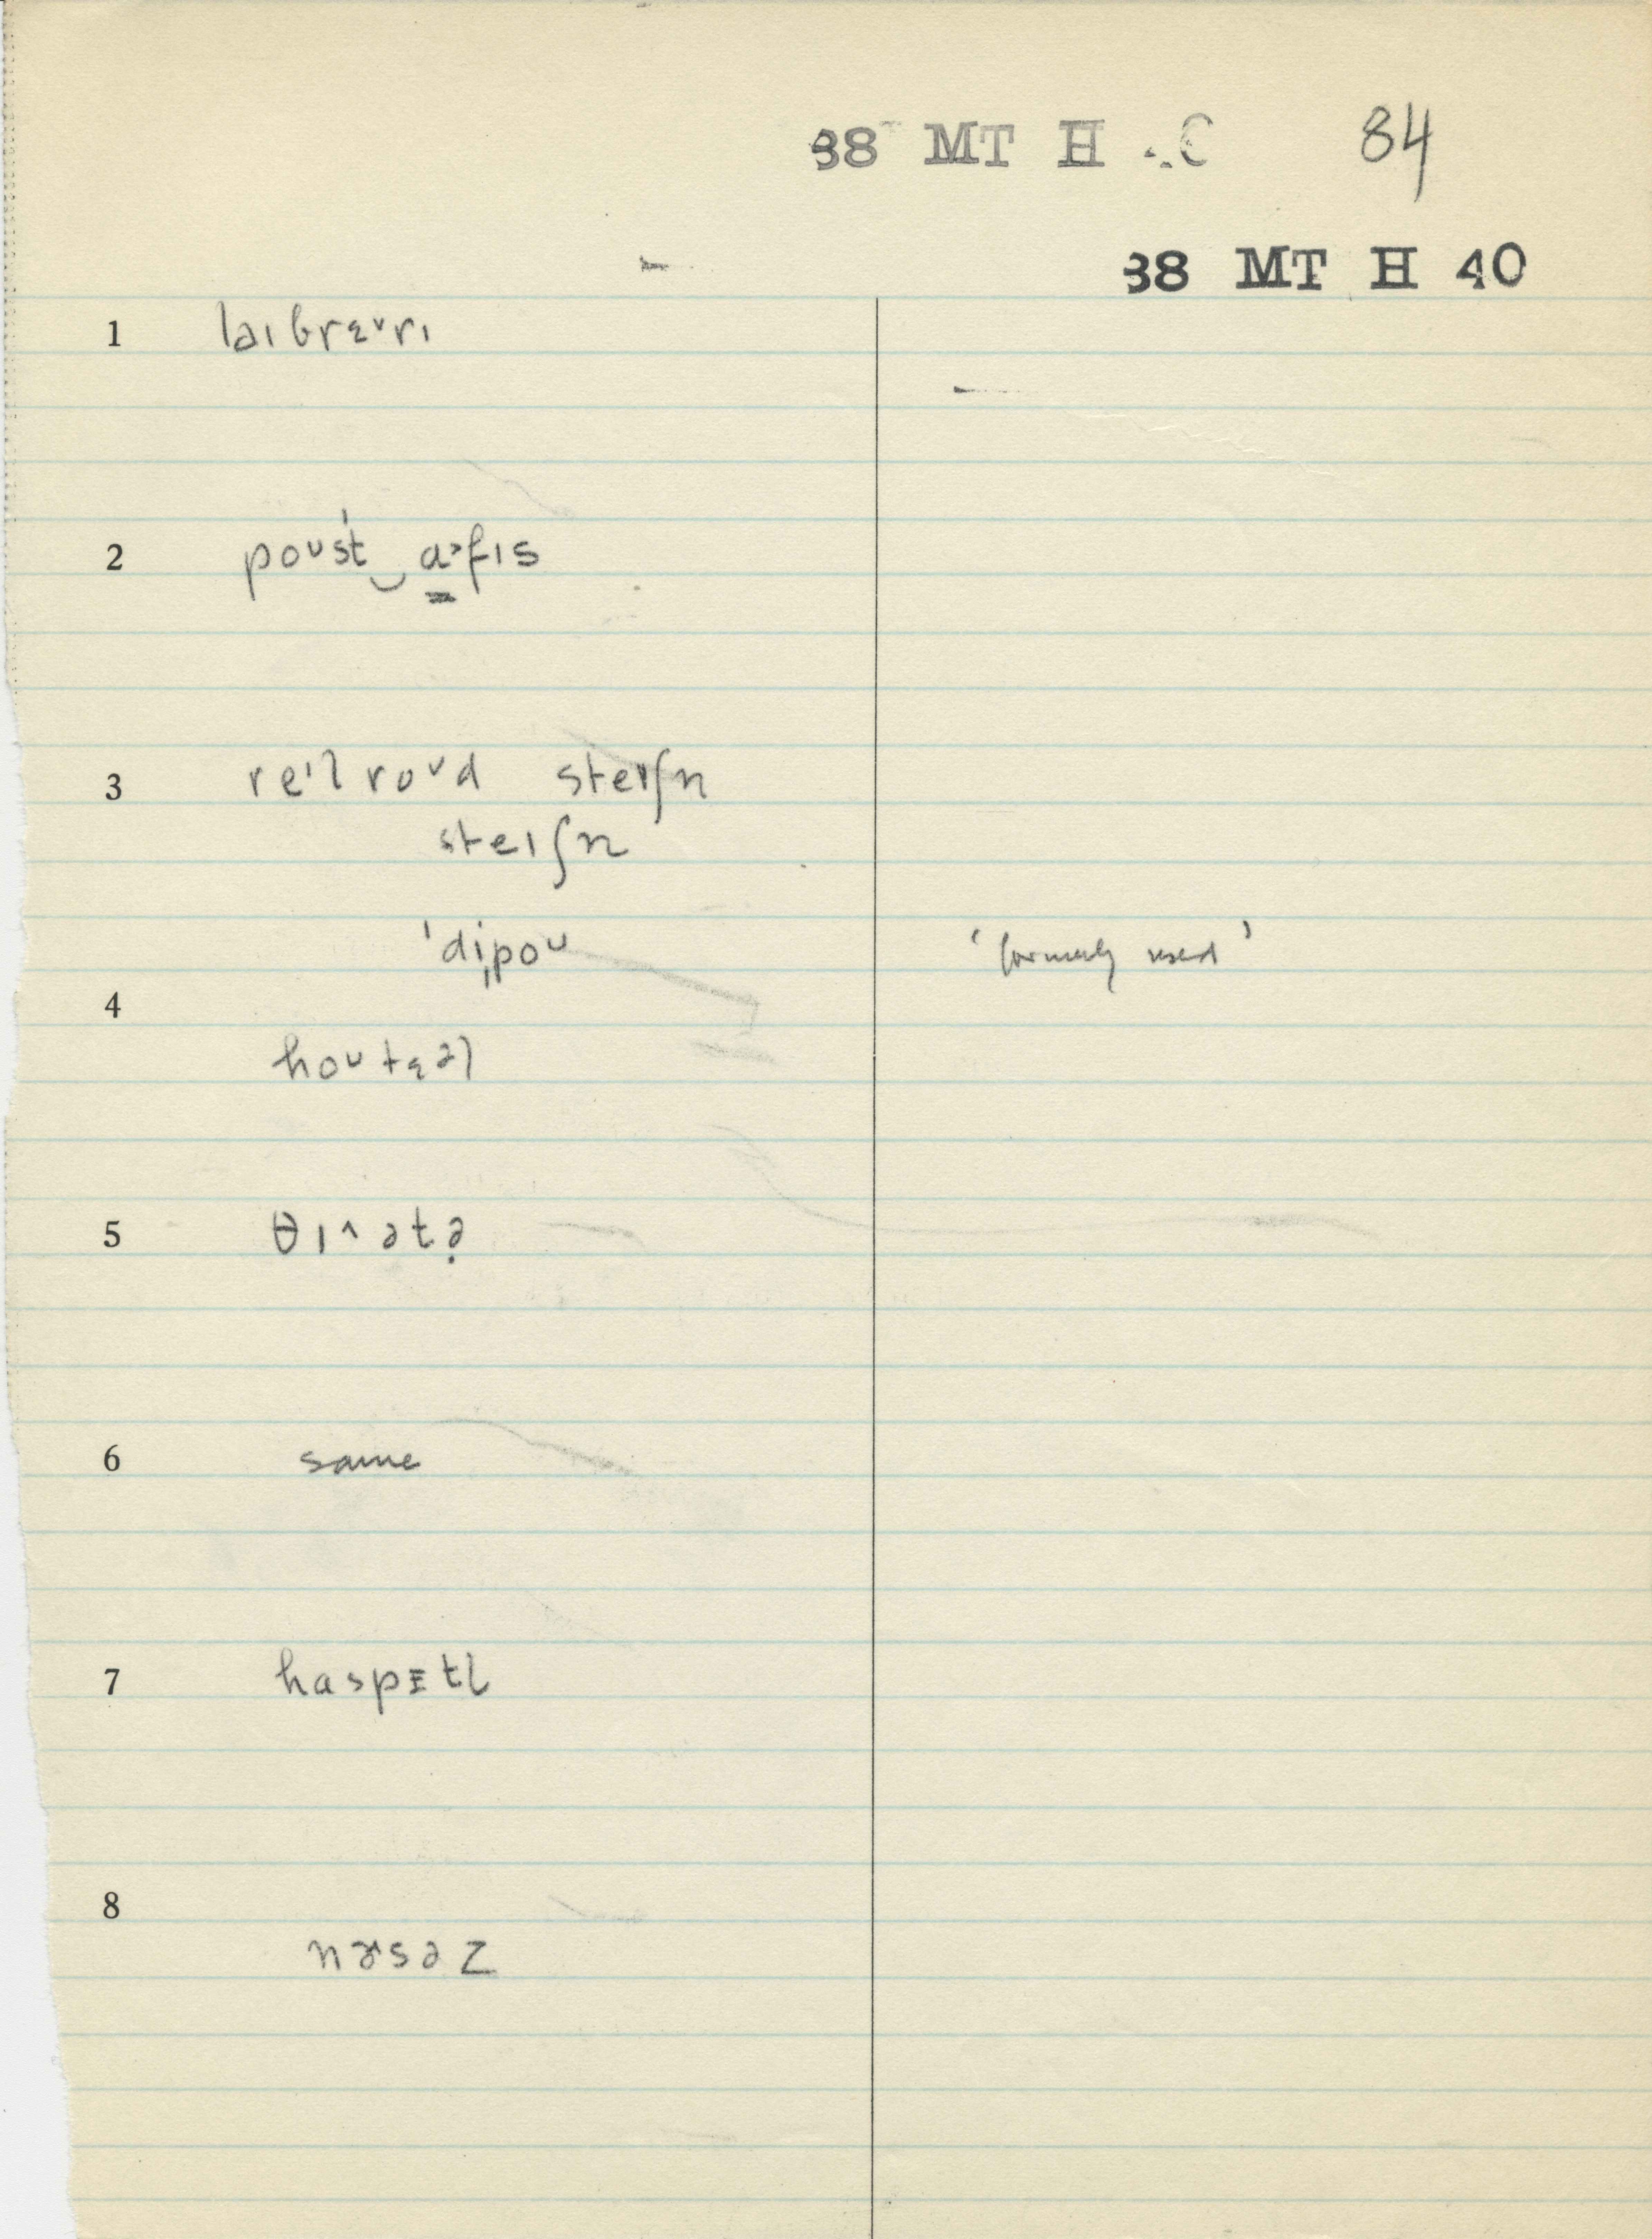 38 MT H 40 84
38 MT H 40
1 laɪbrɛ˅rɪ
2 poʊst‿ɑ˃fɪs
3 reɪl roʊd steɪʃn
steɪʃn
'di̩poʊ ‘formerly used’
4
hoʊtɛəl
5 θɪ^ətə̣
6 same
7 haspɪtl
8
nɝsəz